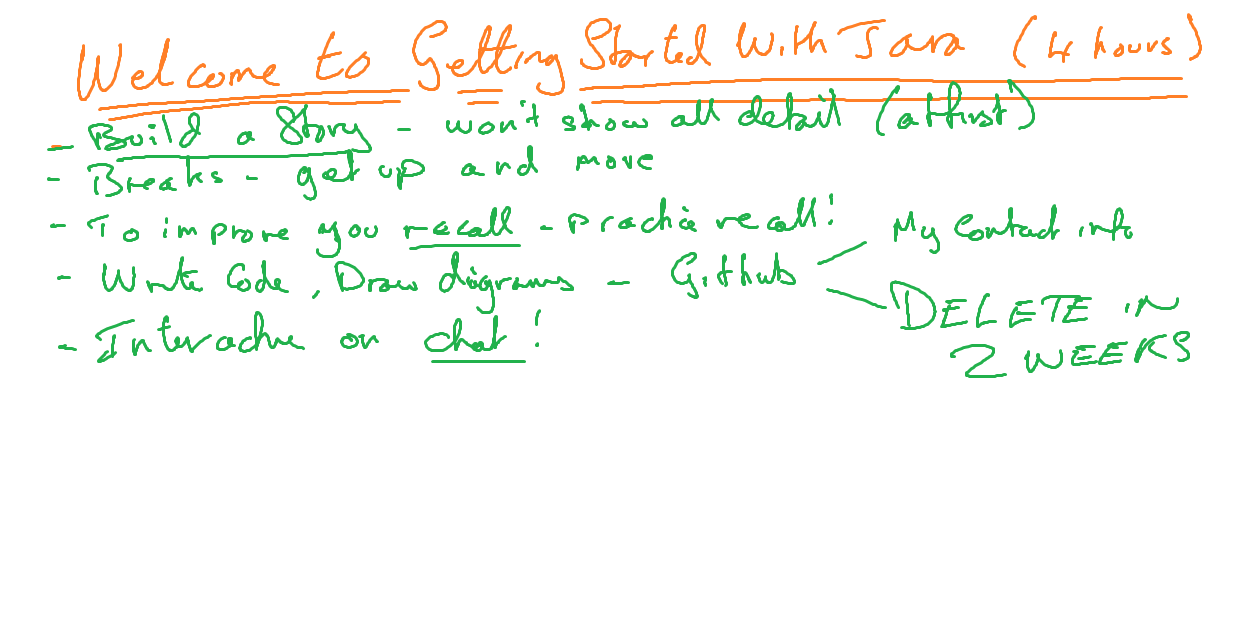 Welcome to Getting Started With Java (4 hours)
- Build a Story - won't show all detail (at first)
- Breaks - get up and move
- To improve you recall - Practice recall!
- Write Code, Draw diagrams - Github
My Contact info
DELETE IN
2 WEEKS
- Interactive on chat!